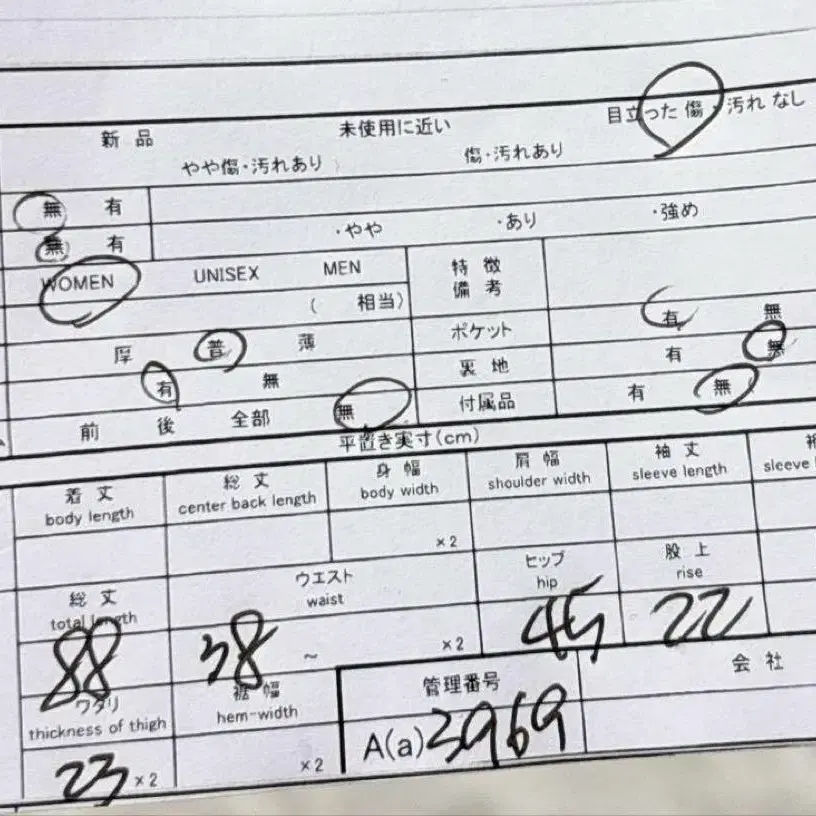 新品 未使用に近い 目立った傷・汚れなし
やや傷・汚れあり 傷・汚れあり
無 有
無 有 ・やや ・あり ・強め
WOMEN UNISEX MEN 特徴
備考
( 相当)
厚 普 薄 ポケット 有 無
有 無 裏地 有 無
前 後 全部 無 付属品 有 無
平置き実寸(cm)
着丈 総丈 身幅 肩幅 袖丈
body length center back length body width shoulder width sleeve length sleeve
×2
総丈 ウエスト ヒップ 股上
total length waist hip rise
88 38 ~ ×2 45 22
ワタリ 裾幅 管理番号 会社
thickness of thigh hem-width
23 ×2 ×2 A(a)3969